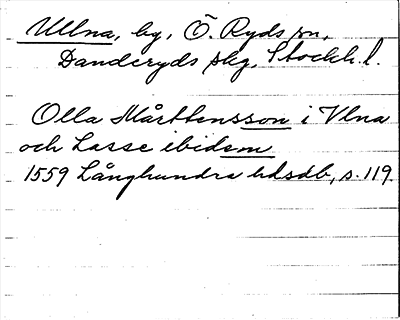 Ullna, by, Ö. Ryds sn,
Danderyds skg, Stockh. l.
Olla Mårttensson i Vlna
och Lasse ibidem
1559 Långhundra hdsdb, s. 119